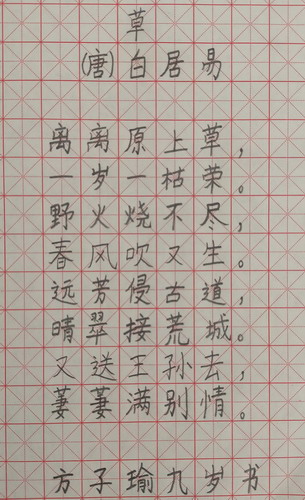 草
(唐)白居易
离离原上草,
一岁一枯荣。
野火烧不尽,
春风吹又生。
远芳侵古道,
晴翠接荒城。
又送王孙去,
萋萋满别情。
方子瑜九岁书